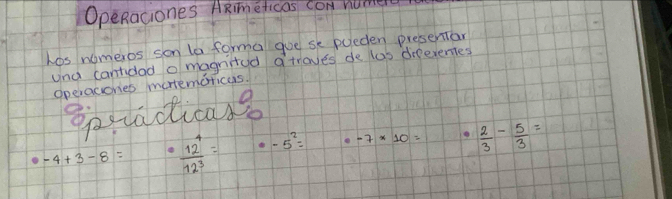 Operaciones Arimeticas con
Los números son la forma que se pueden presentar
una cantidad o magnitud a través de las diferentes
operaciones matemáticas.
prácticas
-4+3-8= 12⁴/12³= -5²= -7×10= 2/3 - 5/3 =